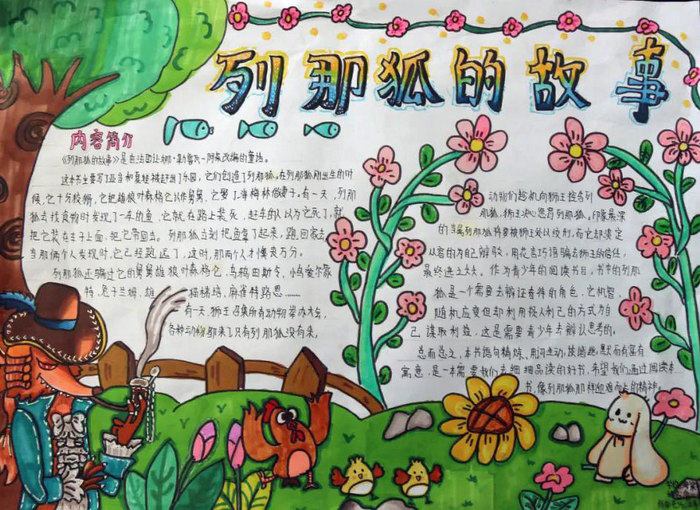 列那狐的故事
内容简介
《列那狐的故事》是由法国
改编的童话。
这本书主要写了亚当和夏娃被赶出了乐园，它们创造了列那狐。在列那狐刚出生的时候，
它十分狡猾，它把雄狼叶森格
认作舅舅，它娶了海梅林做妻子。有一天，列那
狐去找食物时发现了一车的鱼，它就在路上装死，赶车的人以为它死了，就
把它装在车子上面，把它带回去。列那狐立刻把鱼拿了起来，跑回家去，
当那俩个人发现时，它已经跑远了，这时，那两个人才懊丧万分。
列那狐还骗过它的舅舅雄狼叶森格仑，乌鸦田斯令、
特、兔子兰姆、雄
猫梯培、麻雀特路恩……
有一天，狮王召集所有动物举办大会，
各种动物都来了只有列那狐没有来，
动物们趁机向狮王控告列
那狐，狮王决心惩罚列那狐，印象最深
的
是列那狐将要被狮王处以绞刑，而它却镇定
从容的为自己辩驳，用花言巧语骗去狮王的信任，
最终逃之夭夭。作为青少年的阅读书目，书中的列那
狐是一个需要去辩证看待的角色，它机智、
随机应变但却利用损人利己的方式为自
己谋取利益，这是需要青少年去辩认思考的。
总而总之，本书语句精炼、
而富有
寓意，是一本需要我们去细细品读的好书，希望我们通过阅读本
书，像列那狐那样迎难向上的精神。